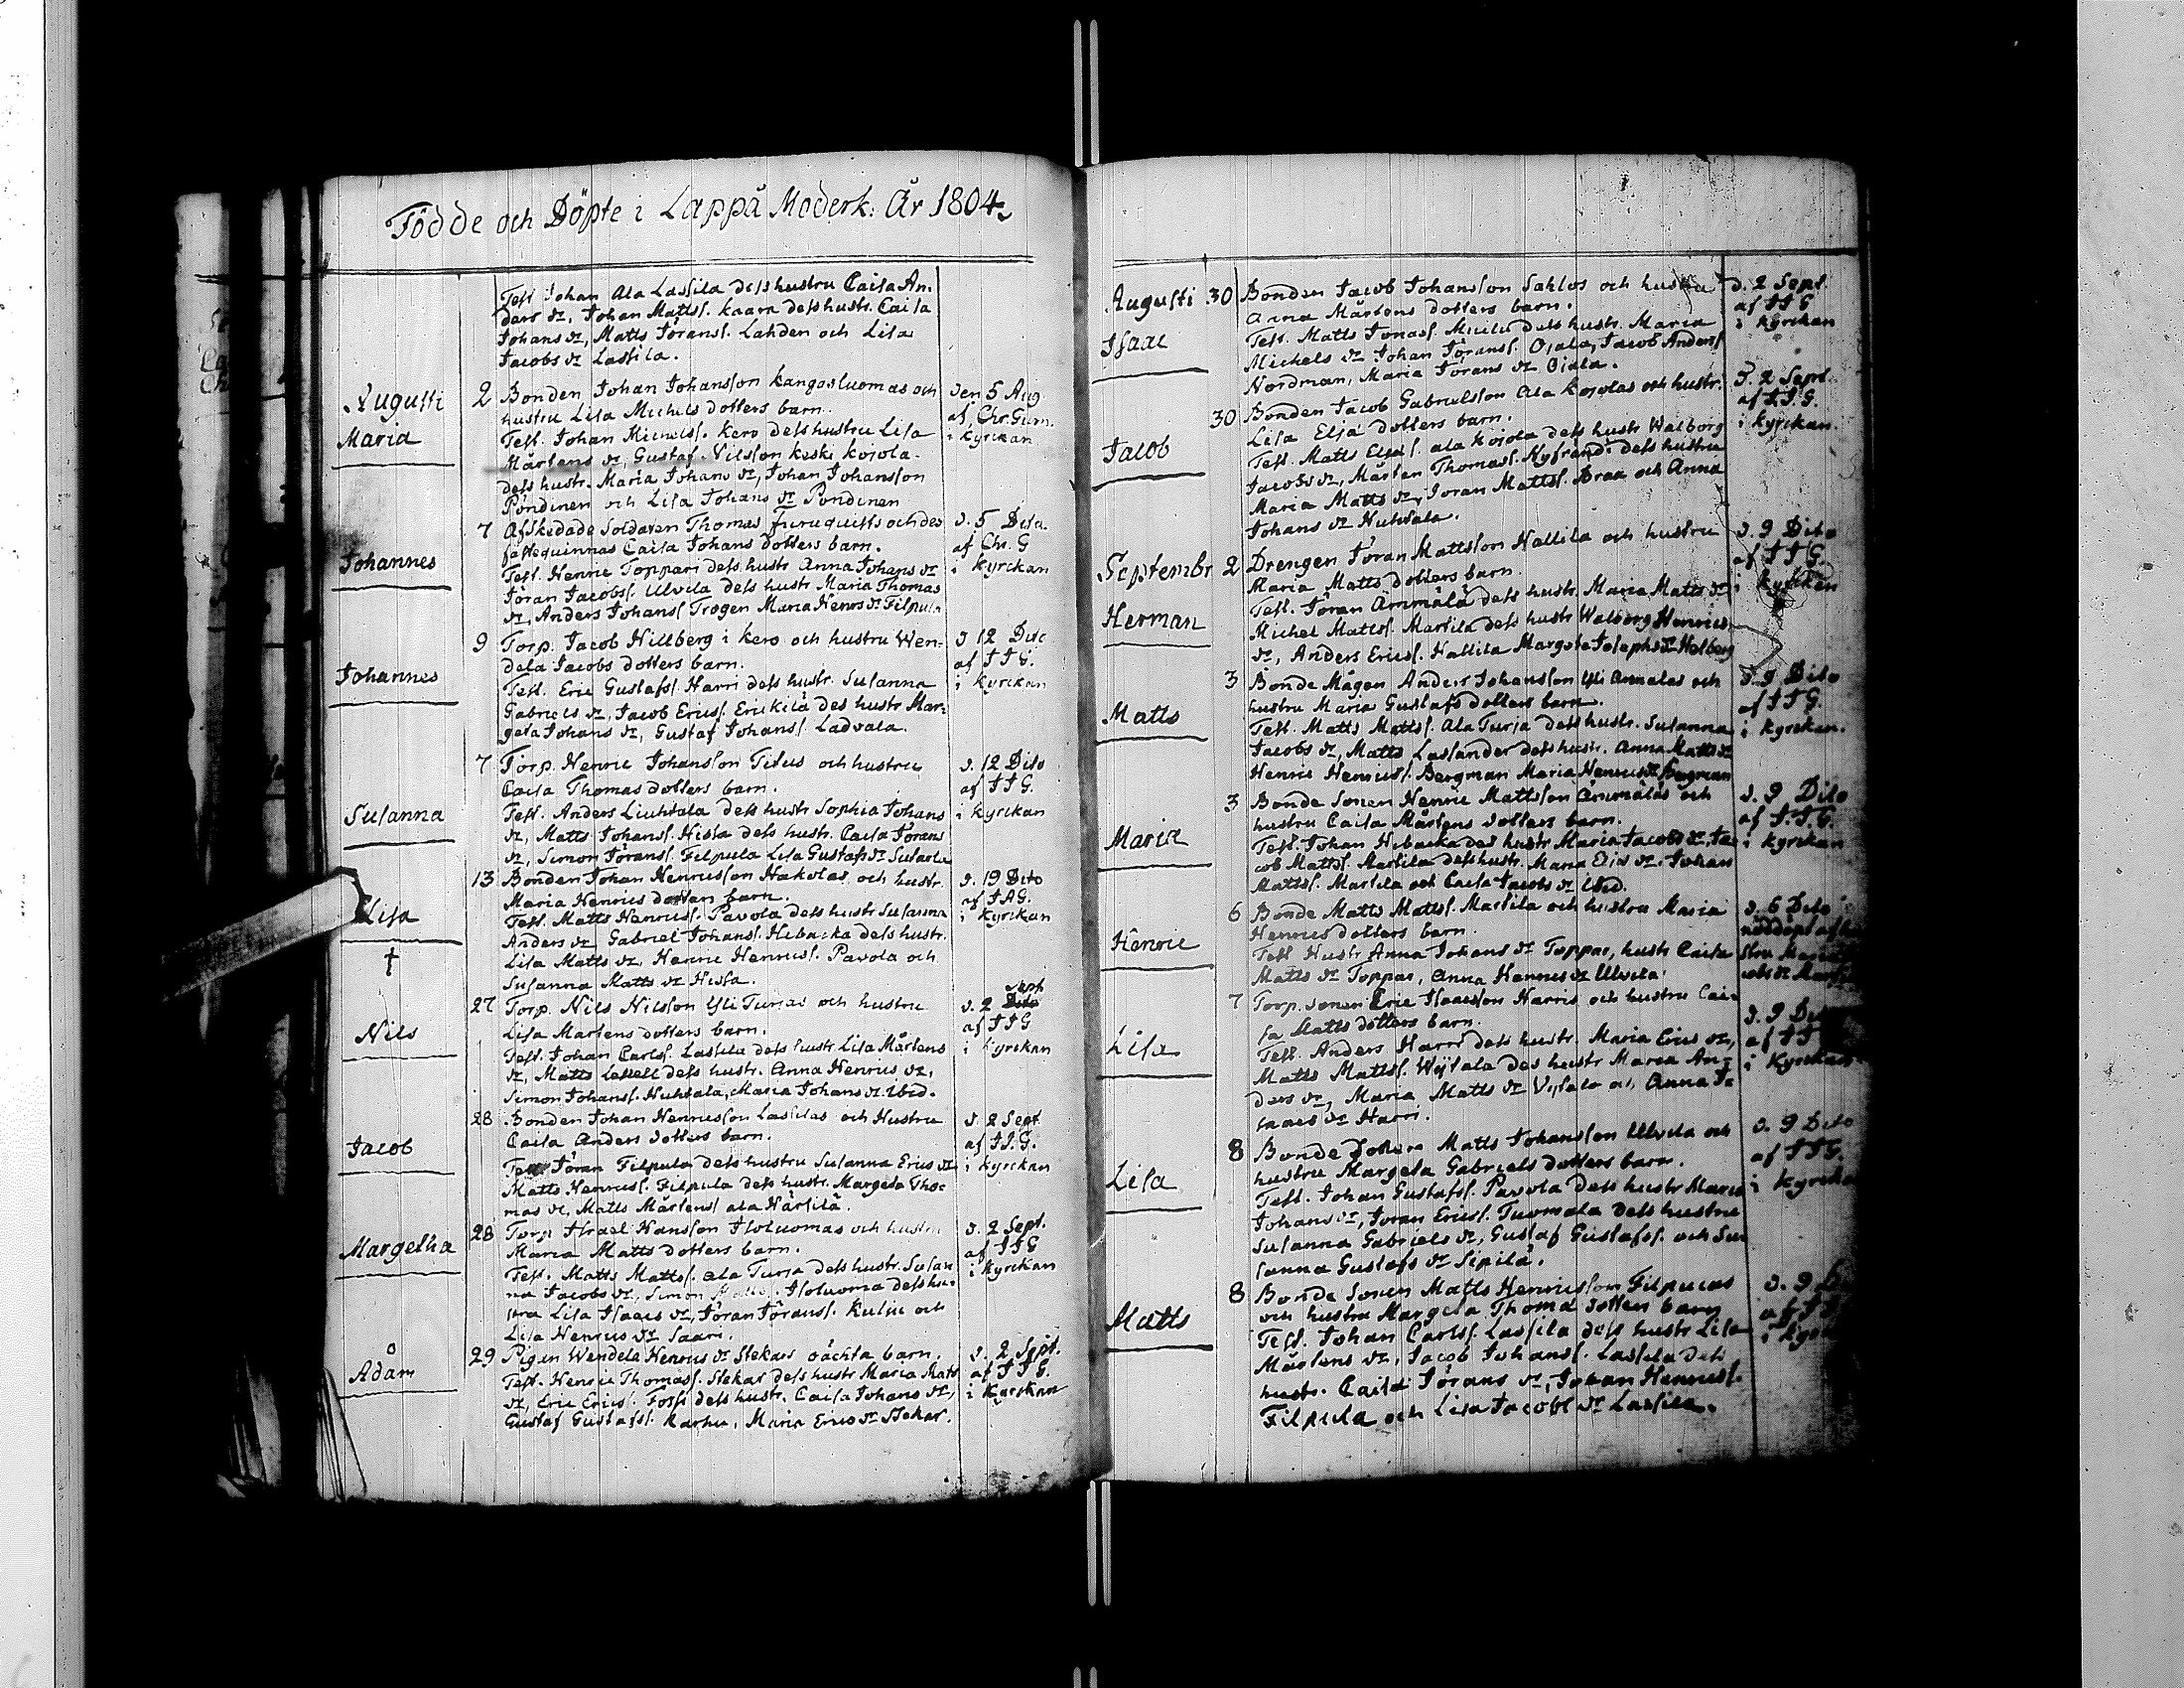 Födde och Döpte i Lappå Moderk: År 1804.
Test. Johan Ala Lassila dess hustru Caisa An-
ders dr, Johan Mattss. Kaara dess hustr. Caisa
Johans dr, Matts Jöranss. Lahden och Lisa
Jacobs dr Lassila.
Augusti 2 Bonden Johan Johansson Kangosluomas och den 5 Aug
Maria hustru Lisa Michels dotters barn. af Chr. Gum.
Test. Johan Michelss. Kero dess hustru Lisa i Kyrckan
Mårtens dr, Gustaf Nilsson Keski Kojola.
dess hustr. Maria Johans dr, Johan Johansson
Pöndinen och Lisa Johans dr Pöndinen
7 Afskedade Soldaten Thomas Furuquists och des d. 5 Dito
Johannes fästequinnas Caisa Johans dotters barn. af Chr. G
Test. Henric Toppari dess hustr Anna Johans dr i Kyrckan
Jöran Jacobss. Ulvila dess hustr Maria Thomas
dr, Anders Johanss. Trogen Maria Henrs dr Filpula
9 Torp. Jacob Hillberg i Kero och hustru Wen- d 12 Dito
Johannes dela Jacobs dotters barn. af J J G.
Test. Eric Gustafss. Harri dess hustr. Susanna i Kyrckan
Gabriels dr, Jacob Ericss. Erickilä des hustr Mar-
geta Johans dr, Gustaf Johanss. Ladvala.
7 Torp. Henric Johansson Titus och hustru d. 12 Dito
Caisa Thomas dotters barn. af J J G.
Susanna Test. Anders Liuhtala dess hustr Sophia Johans i Kyrckan
dr, Matts Johanss. Hissa dess hustr. Caisa Jörans
dr, Simon Jöranss. Filpula Lisa Gustafs dr
13 Bonden Johan Henricsson Hakolas och hustr. d. 19 Dito
Maria Henrics dotters barn. af J A G.
Lisa Test. Matts Henricss. Pavola dess hustr Susanna i Kyrckan
Anders dr Gabriel Johanss. Hibacka dess hustr.
† Lisa Matts dr, Henric Henricss. Pavola och
Susanna Matts dr Hissa.
Sept
27 Torp. Nils Nilsson Yli Turjas och hustru d. 2 Dito
Nils Lisa Mårtens dotters barn. af J J G
Test. Johan Carlss. Lassila dess hustr Lisa Mårtens i Kyrckan
dr, Matts Lassell dess hustr. Anna Henrics dr,
Simon Johanss. Huhtala, Maria Johans dr ibid.
28 Bonden Johan Henricsson Lassilas och Hustru d. 2 Sept
Jacob Caisa Anders dotters barn. af J J. G.
Test Jöran Filpula dess hustru Susanna Erics dr i Kyrckan
Matts Henricss. Filpula dess hustr. Margeta Tho-
mas dr, Matts Mårtenss ala Härsilä.
28 Torp Israel Hansson Isoluomas och hustru d. 2 Sept.
Margetha Maria Matts dotters barn. af J J G
Test. Matts Mattss. ala Turja dess hustr. Susan- i Kyrckan
na Jacobs dr, Simon Isoluoma dess hu-
stru Lisa Isaacs dr, Jöran Jöranss. Kuliu och
Lisa Henrics dr Saari.
29 Pigan Wendela Henrics dr Stekars oächta barn. d. 2 Sept.
Adam Test. Henric Thomass. Stekar dess hustr Maria Matts af J J G.
dr, Eric Ericss. Forss dess hustr. Caisa Johans dr, i Kyrckan
Gustaf Gustafss. Karhu, Maria Erics dr Stekar.
Augusti 30 Bonden Jacob Johansson Sahlos och hustru d. 2 Sept.
Anna Mårtens dotters barn. af J J G
Isaac Test. Matts Jonass. dess hustr. Maria i Kyrckan
Michels dr Johan Jöranss. Ojala, Jacob Anderss
Nordman, Maria Jörans dr Ojala.
30 Bonden Jacob Gabrielsson Ala Kojolas och hustr. d. 2 Sept.
Lisa Eljä dotters barn. af J J G.
Jacob Test. Matts Eljæs. ala Kojola dess hustr Walborg i Kyrckan.
Jacobs dr, Mårten Thomass. dess hustru
Maria Matts dr, Jöran Mattss. Braa och Anna
Johans dr Huhtala.
Septembr 2 Drengen Jöran Mattsson Hallila och hustru d. 9 Dito
Maria Matts dotters barn. af J J G.
Herman Test. Jöran Ämmälä dess hustr. Maria Matts dr i Kyrckan
Michel Mattss. Martila dess hustr Walborg Henrics
dr, Anders Ericss. Hallila Margeta Josephs dr Holberg
3 Bonde Mågen Anders Johansson Yli Annalas och d. 9 Dito
hustru Maria Gustafs dotters barn. af J J G.
Matts Test. Matts Mattss. Ala Turja dess hustr. Susanna i Kyrckan.
Jacobs dr, Matts Laslander dess hustr. Anna Matts dr
Henric Henricss. Bergman Maria Henrics dr Bergman
3 Bonde Sonen Henric Mattsson Ämmälas och d. 9 Dito
hustru Caisa Mårtens dotters barn. af J. J G.
Maria Test. Johan Hibacka des hustr Maria Jacobs dr, Ja- i Kyrckan
cob Mattss. Martila dess hustr. Maria Elias dr Johan
Mattss. Martila och Caisa Jacobs dr ibid.
6 Bonde Matts Mattss. Martila och hustru Maria d. 6 Dito
Henric Henrics dotters barn. nöddöpt af hu-
Test Hustr Anna Johans dr Toppar, hustr Caisa stru Maria
Matts dr Toppar, Anna Henrics dr Ulvila.
7 Torp. sonen Eric Isaacsson Harris och hustru Cai- d. 9 Dito
Lisa sa Matts dotters barn. af J J
Test. Anders Harri dess hustr. Maria Erics dr, i Kyrckan
Matts Mattss. Wijtala des hustr Maria An-
ders dr, Maria Matts dr och Anna I-
saacs dr Harri.
8 Bonde Sonen Matts Johansson Ulvila och d. 9 Dito
Lisa hustru Margeta Gabriels dotters barn. af J J G.
Test. Johan Gustafss. Pavola dess hustr Maria i Kyrckan
Johans dr, Jöran Ericss. Tuomala dess hustru
Susanna Gabriels dr, Gustaf Gustafss. och Su-
sanna Gustafs dr Sipilä.
8 Bonde Sonen Matts Henricsson Filpulas d. 9
Matts och hustru Margeta Thomæ dotters barn
Test. Johan Carlss. Lassila dess hustr Lisa
Mårtens dr, Jacob Johanss. Lassila dess
hustr. Caisa Jörans dr, Johan Henricss.
Filpula och Lisa Jacobs dr Lassila.